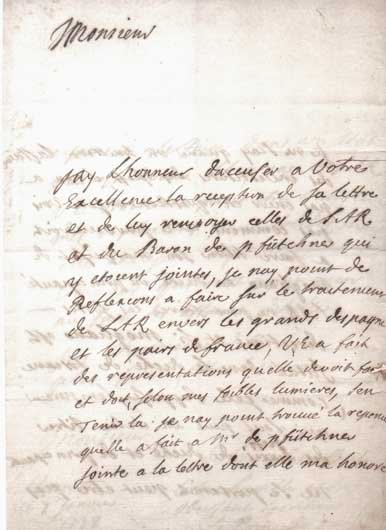 Monsieur
Jay Lhonneur daccuser a Votre
Excellence la reception de sa lettre
et de luy renvoyer celles de SAR
et du Baron de pfütchner qui
y etoient jointes, je nay point de
Reflexcions a faire sur le traitement
de SAR envers les grands despagne
et les pairs de france, VE a fait
des representations quelle devoit faire
et doit, selon mes foibles lumieres, sen
Tenir la. je nay point trouvé la reponce
quelle a fait a Mr. de pfütchner
jointe a la lettre dont elle ma honoré